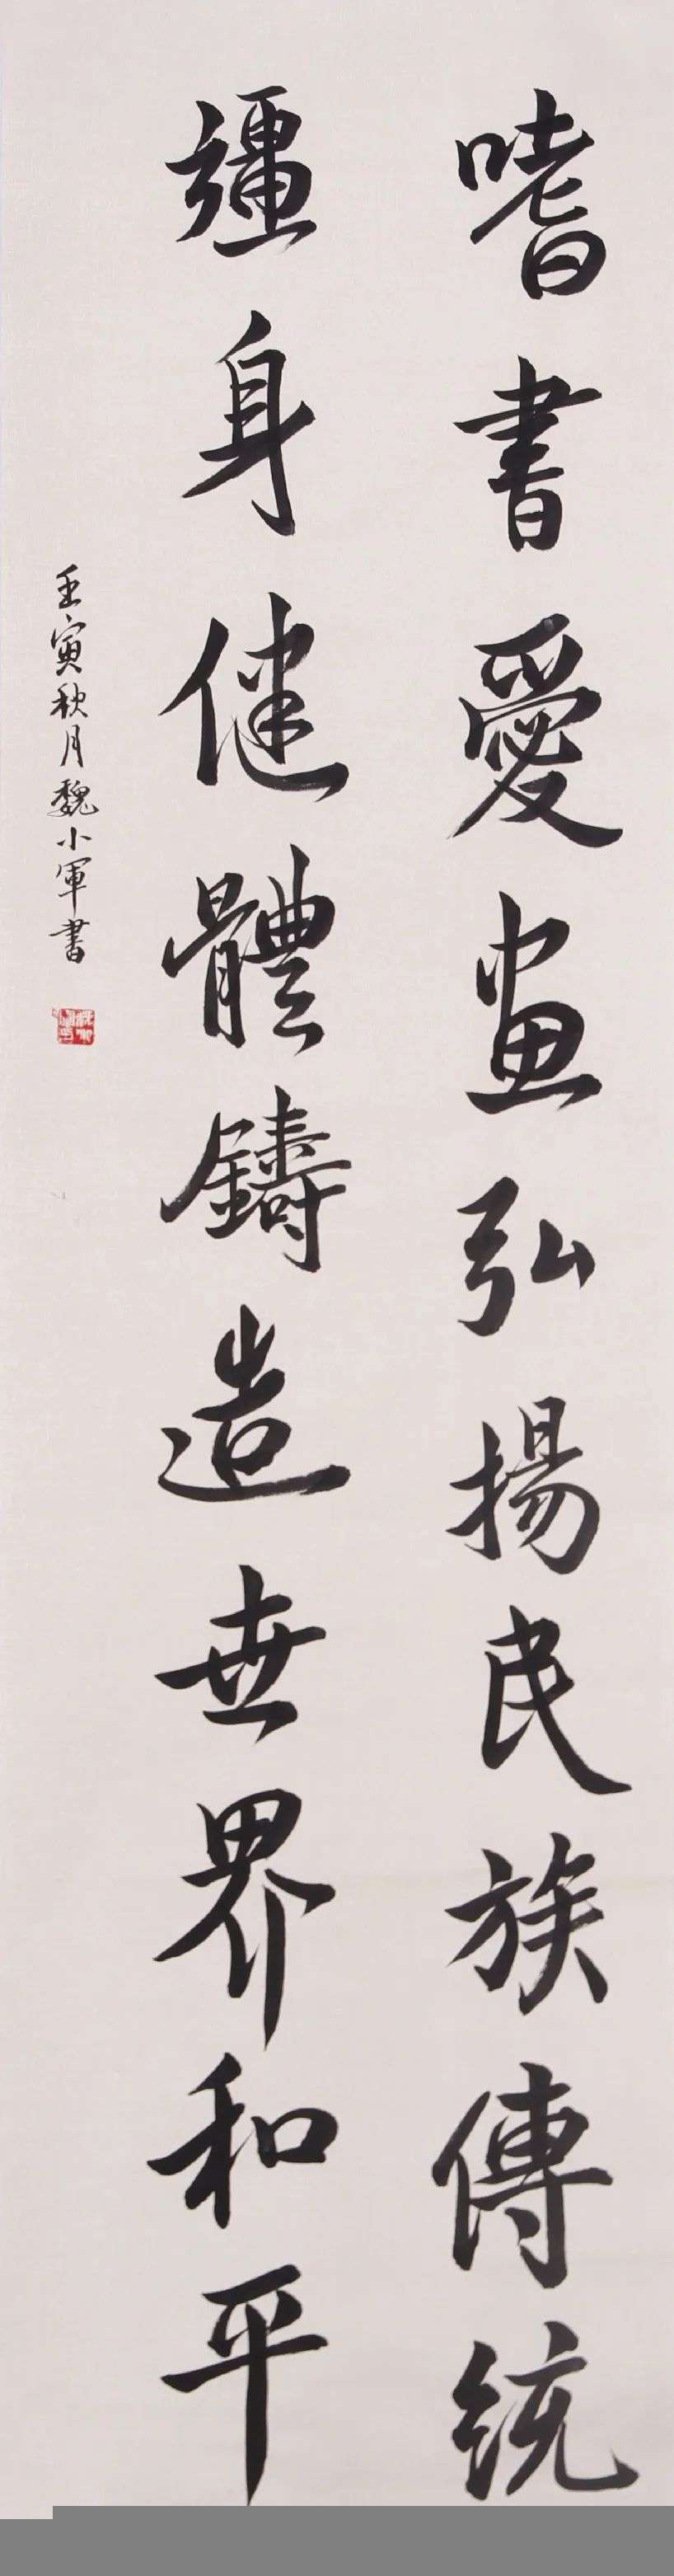 嗜書愛畫弘揚民族傳統
彊身健體鑄造世界和平
壬寅秋月魏小軍書